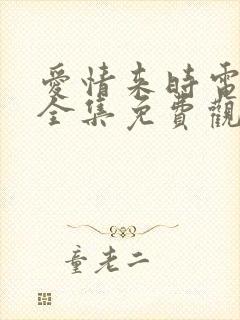 愛情來時電
全集免費觀
童老二